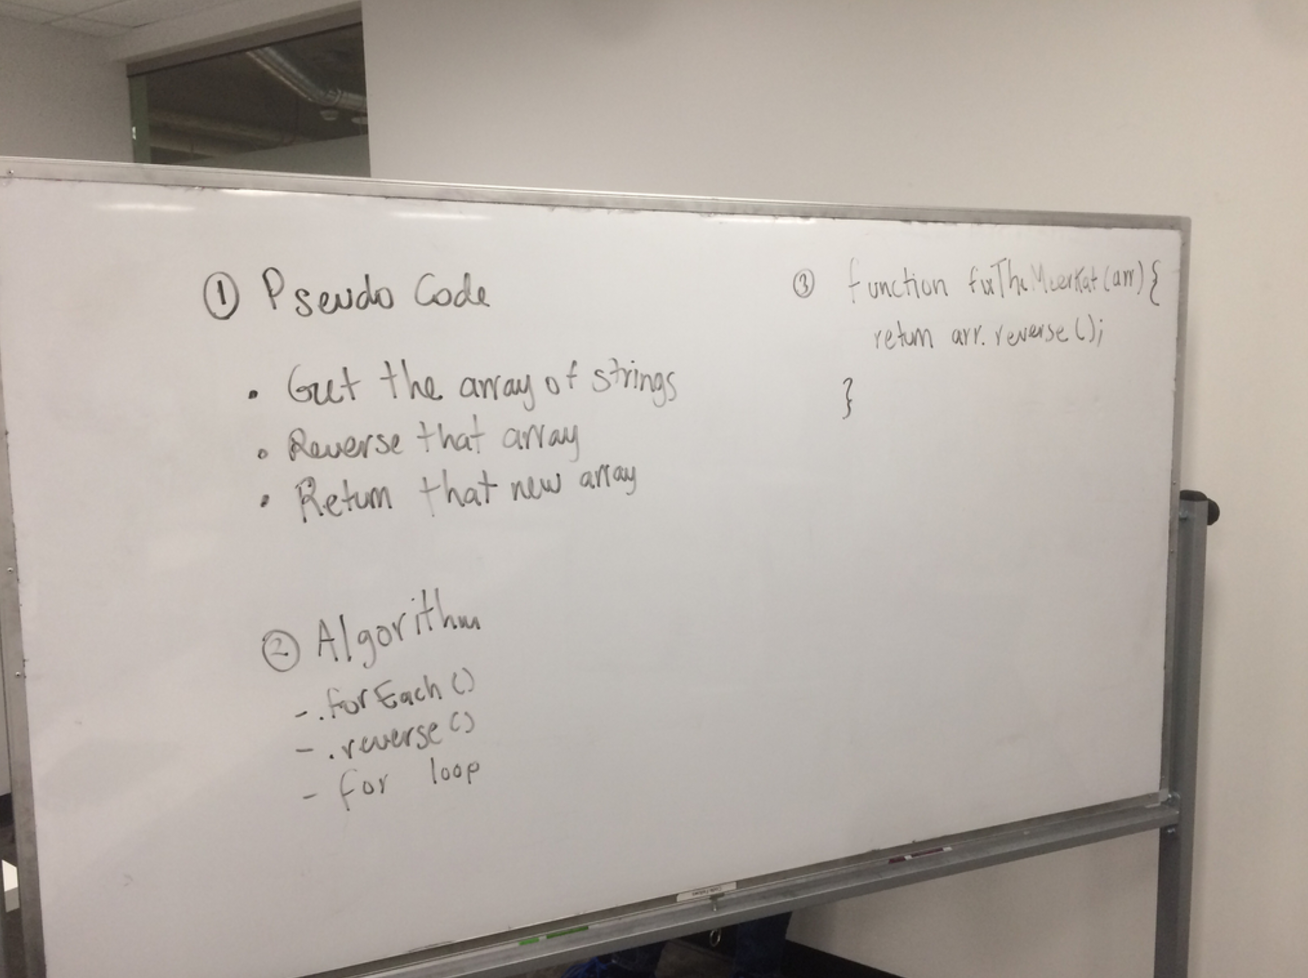 ① Pseudo Code
• Get the array of strings
• Reverse that array
• Return that new array
② Algorithm
- .forEach()
- .reverse()
- for loop
③ function fixTheMeerKat(arr) {
return arr.reverse();
}